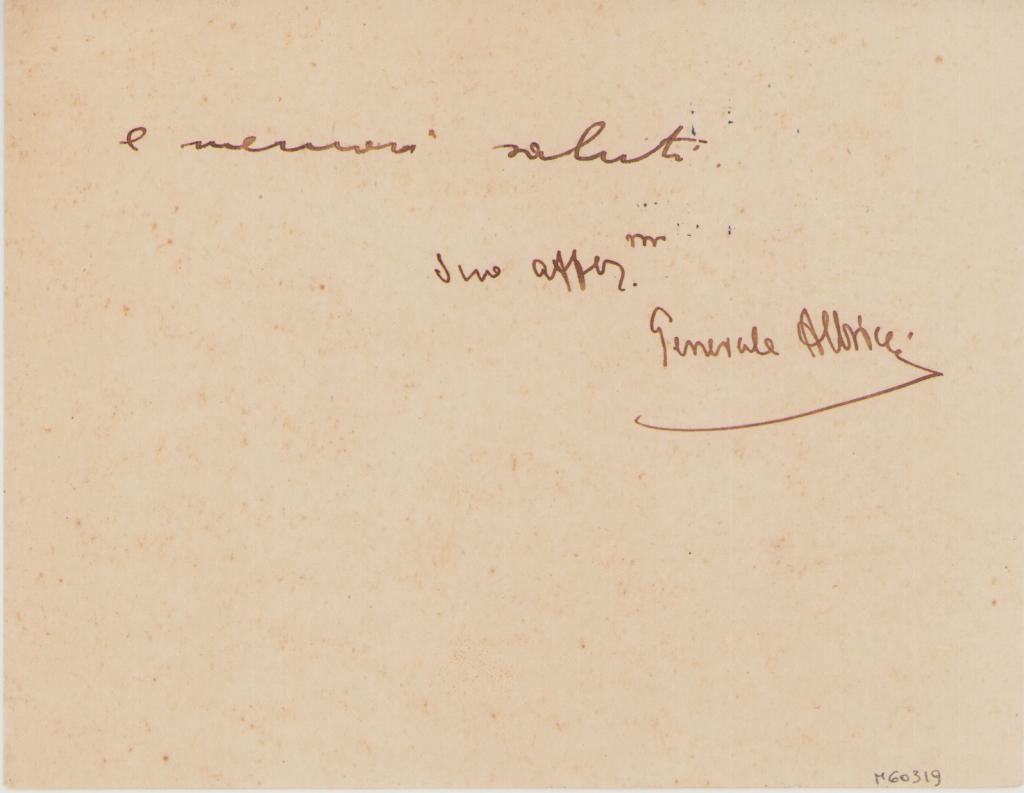 e memori saluti.
Suo affez.mo
Generale Albricci
M60319